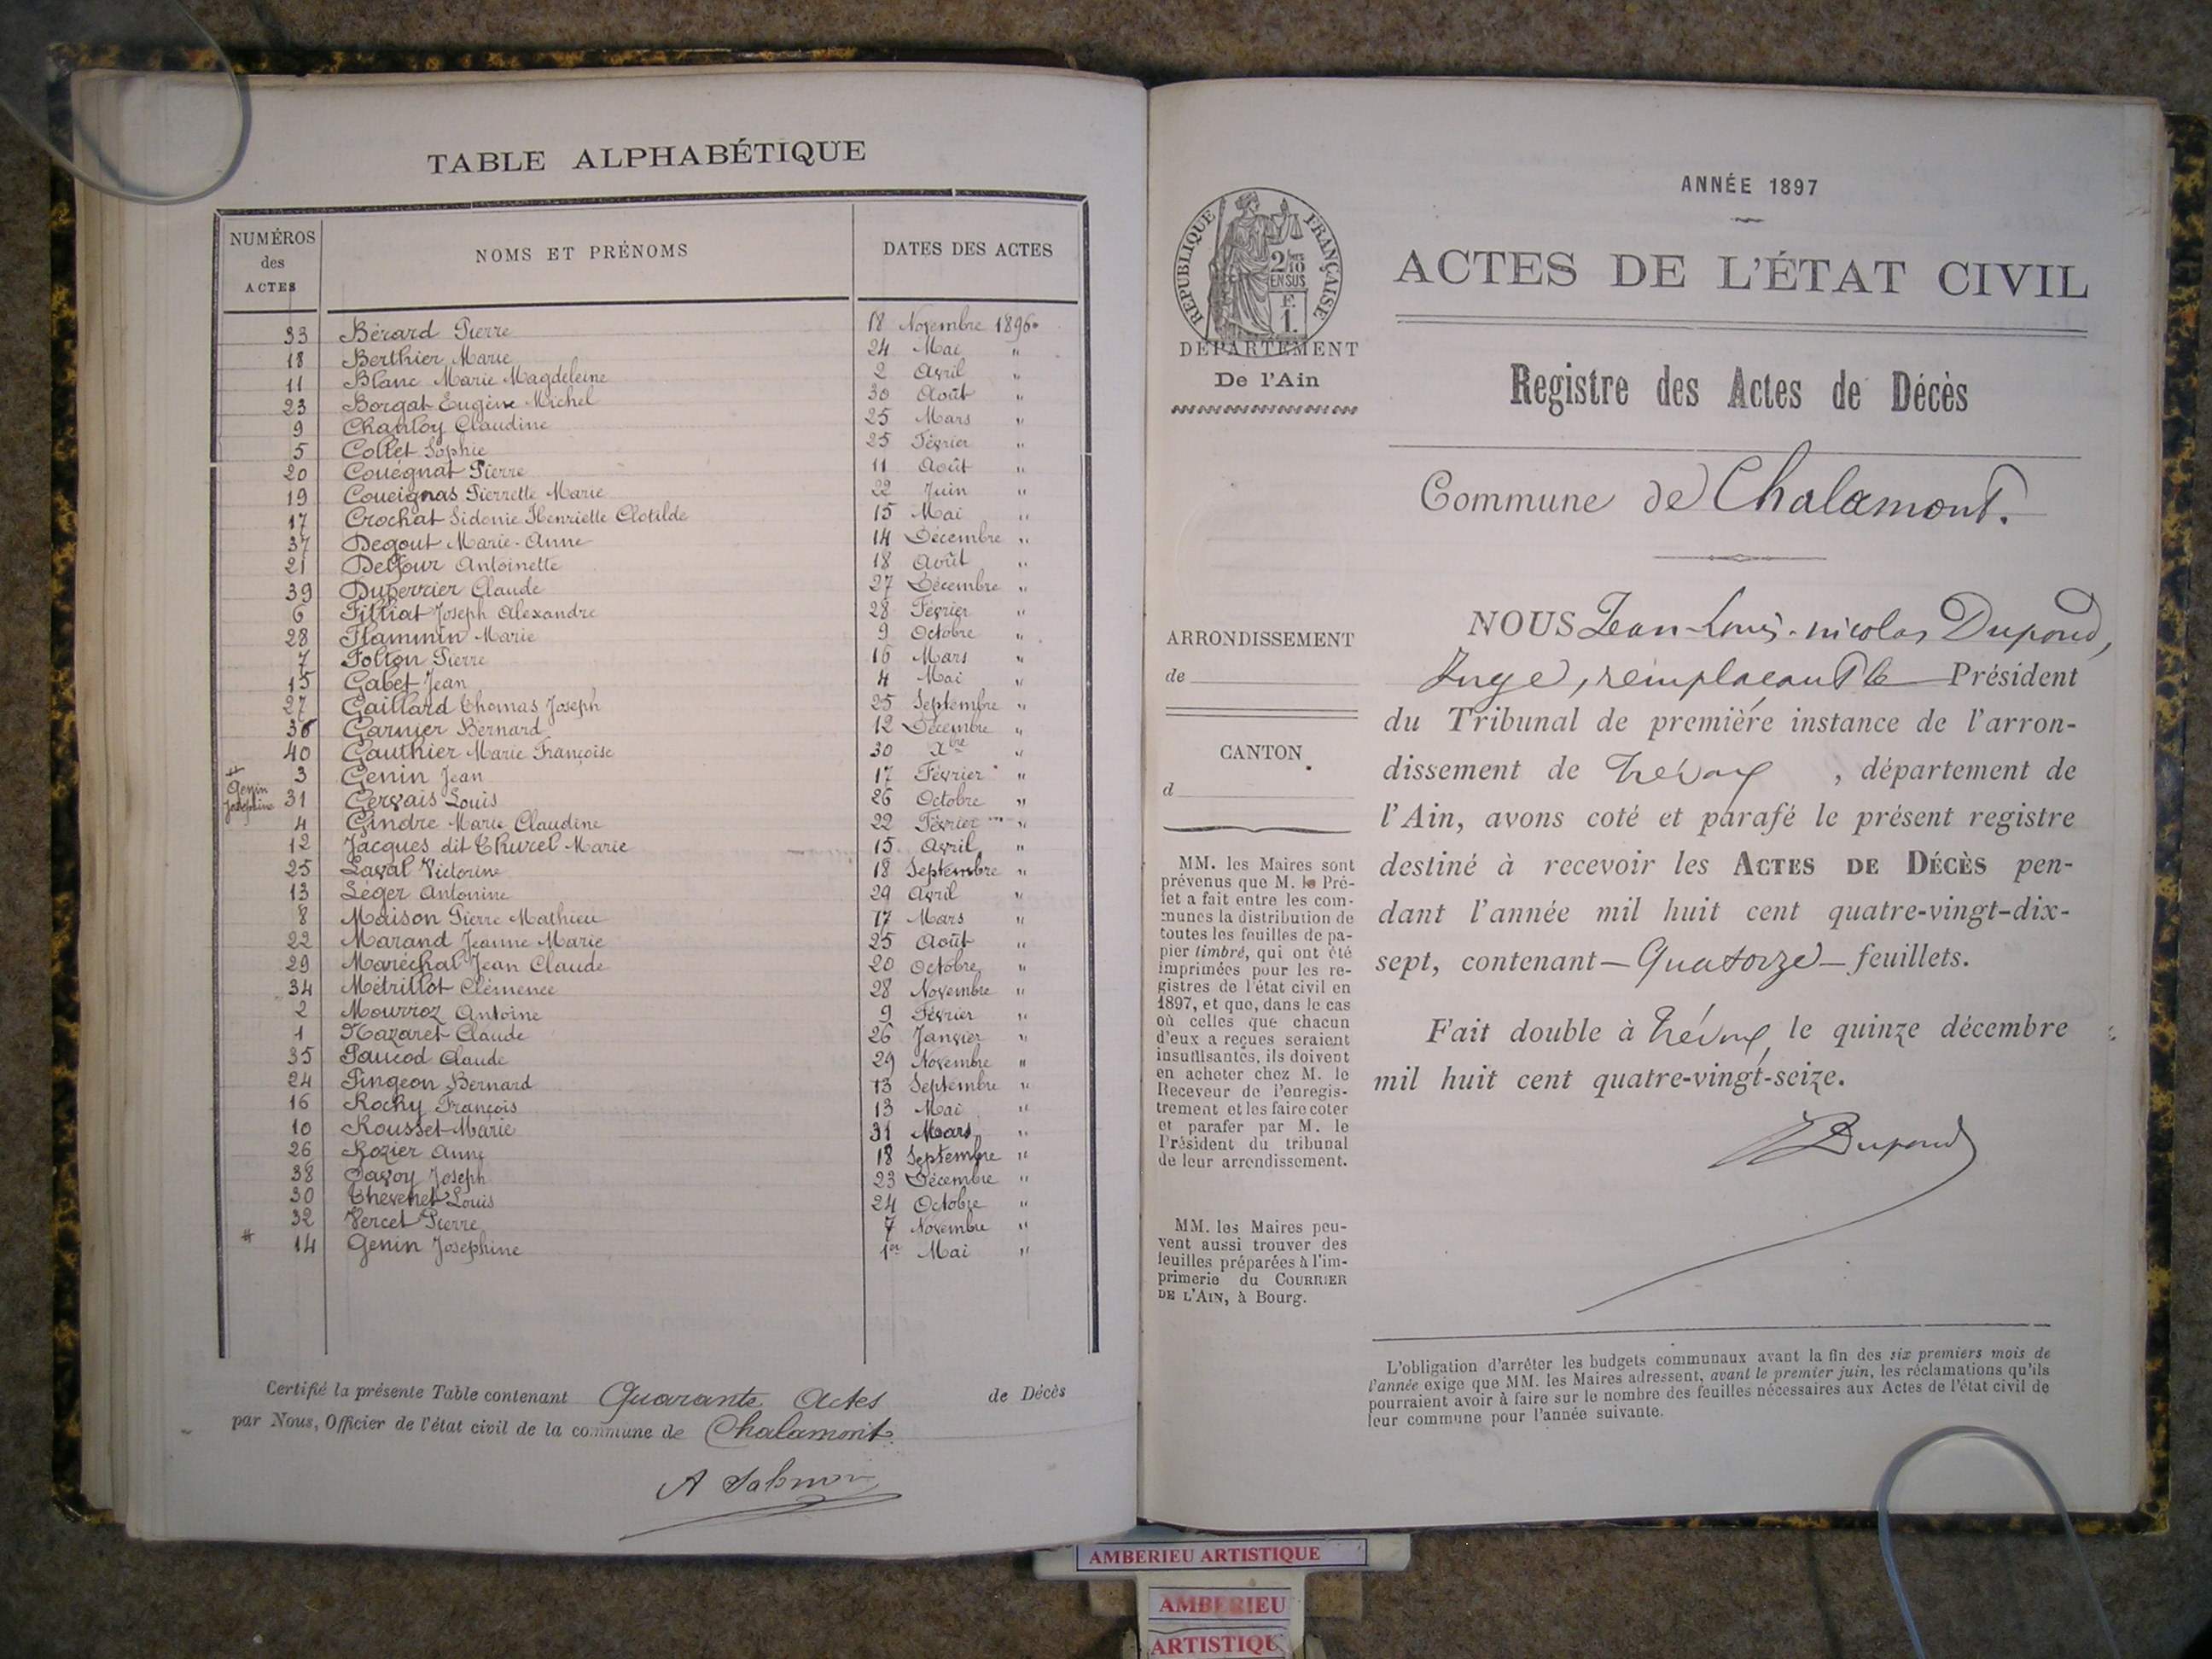 TABLE ALPHABÉTIQUE
NUMÉROS des ACTES | NOMS ET PRÉNOMS | DATES DES ACTES
33 Bérard Pierre 18 Novembre 1896
18 Berthier Marie 24 Mai "
11 Blanc Marie Magdeleine 2 Avril "
23 Borgat Eugène Michel 30 Août "
9 Chanloy Claudine 25 Mars "
5 Collet Sophie 25 Février "
20 Couégnat Pierre 11 Août "
19 Coueignas Pierrette Marie 22 Juin "
17 Crochat Sidonie Henriette Clotilde 15 Mai "
37 Degout Marie-Anne 14 Décembre "
21 Delfour Antoinette 18 Août "
39 Duperrier Claude 27 Décembre "
6 Filliat Joseph Alexandre 28 Février "
28 Flammin Marie 9 Octobre "
7 Folton Pierre 16 Mars "
15 Gabet Jean 4 Mai "
27 Gaillard Thomas Joseph 25 Septembre "
36 Garnier Bernard 12 Décembre "
40 Gauthier Marie Françoise 30 Xbre "
# 3 Genin Jean 17 Février "
Genin Joséphine
31 Gervais Louis 26 Octobre "
4 Gindre Marie Claudine 22 Février "
12 Jacques dit Thurel Marie 15 Avril "
25 Laval Victorine 18 Septembre "
13 Léger Antonine 29 Avril "
8 Maison Pierre Mathieu 17 Mars "
22 Marand Jeanne Marie 25 Août "
29 Maréchal Jean Claude 20 Octobre "
34 Métrillot Clémence 28 Novembre "
2 Mourroz Antoine 9 Février "
1 Nazaret Claude 26 Janvier "
35 Paucod Claude 29 Novembre "
24 Pingeon Bernard 13 Septembre "
16 Rochy François 13 Mai "
10 Rousset Marie 31 Mars "
26 Rozier Anne 18 Septembre "
38 Savoy Joseph 23 Décembre "
30 Thevenet Louis 24 Octobre "
32 Vercet Pierre 7 Novembre "
# 14 Genin Joséphine 1er Mai "
Certifié la présente Table contenant Quarante Actes de Décès
par Nous, Officier de l'état civil de la commune de Chalamont.
A Salmon
ANNÉE 1897
RÉPUBLIQUE FRANÇAISE
2/10 EN SUS
F. 1.
DÉPARTEMENT
De l'Ain
ACTES DE L'ÉTAT CIVIL
Registre des Actes de Décès
Commune de Chalamont.
ARRONDISSEMENT
de
CANTON
d
MM. les Maires sont
prévenus que M. le Pré-
fet a fait entre les com-
munes la distribution de
toutes les feuilles de pa-
pier timbré, qui ont été
imprimées pour les re-
gistres de l'état civil en
1897, et que, dans le cas
où celles que chacun
d'eux a reçues seraient
insuffisantes, ils doivent
en acheter chez M. le
Receveur de l'enregis-
trement et les faire coter
et parafer par M. le
Président du tribunal
de leur arrondissement.
MM. les Maires peu-
vent aussi trouver des
feuilles préparées à l'im-
primerie du COURRIER
DE L'AIN, à Bourg.
NOUS Jean-Louis-nicolas Dupond,
Juge, remplaçant le Président
du Tribunal de première instance de l'arron-
dissement de Trévoux, département de
l'Ain, avons coté et parafé le présent registre
destiné à recevoir les ACTES DE DÉCÈS pen-
dant l'année mil huit cent quatre-vingt-dix-
sept, contenant — Quatorze — feuillets.
Fait double à Trévoux, le quinze décembre
mil huit cent quatre-vingt-seize.
Dupond
L'obligation d'arrêter les budgets communaux avant la fin des six premiers mois de
l'année exige que MM. les Maires adressent, avant le premier juin, les réclamations qu'ils
pourraient avoir à faire sur le nombre des feuilles nécessaires aux Actes de l'état civil de
leur commune pour l'année suivante.
AMBERIEU ARTISTIQUE
AMBERIEU
ARTISTIQU